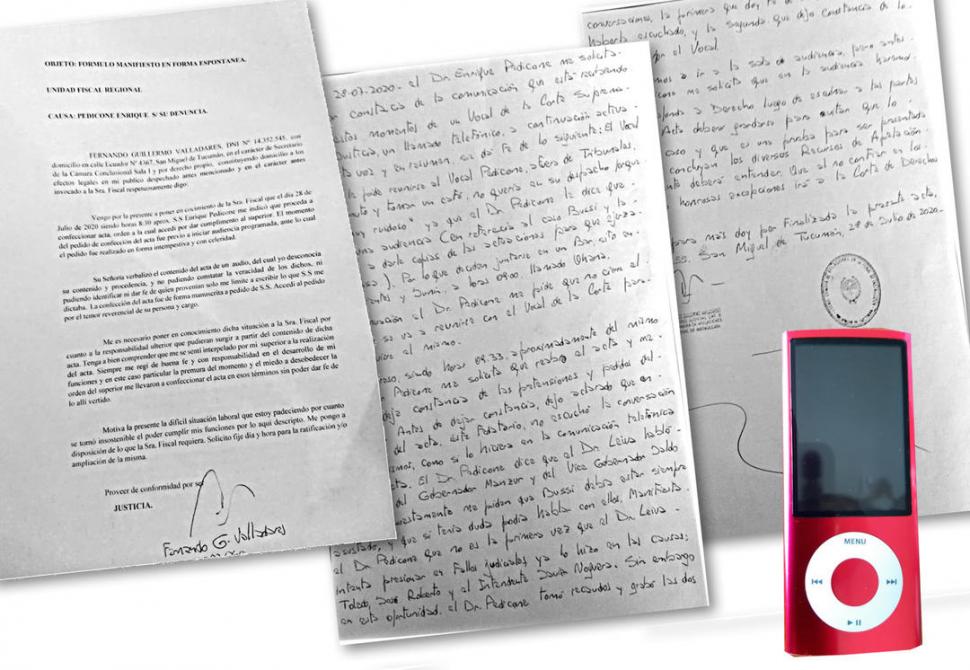 OBJETO: FORMULO MANIFIESTO EN FORMA ESPONTANEA.
UNIDAD FISCAL REGIONAL
CAUSA: PEDICONE ENRIQUE S/ SU DENUNCIA.
FERNANDO GUILLERMO VALLADARES, DNI Nº 14.352.545, con
domicilio en calle Ecuador Nº 4367, San Miguel de Tucumán, en el carácter de Secretario
de la Cámara Conclusional Sala I y por derecho propio, constituyendo domicilio a los
efectos legales en mi público despachado antes mencionado y en el carácter antes
invocado a la Sra. Fiscal respetuosamente digo:
Vengo por la presente a poner en cocimiento de la Sra. Fiscal que el día 28 de
Julio de 2020 siendo horas 8:30 aprox. S.S Enrique Pedicone me indicó que proceda a
confeccionar acta, orden a la cual accedí por dar cumplimiento al superior. El momento
del pedido de confección del acta fue previo a iniciar audiencia programada, ante lo cual
el pedido fue realizado en forma intempestiva y con celeridad.
Su Señoría verbalizó el contenido del acta de un audio, del cual yo desconocía
su contenido y procedencia, y no pudiendo constatar la veracidad de los dichos, ni
pudiendo identificar ni dar fe de quien provenían solo me limite a escribir lo que S.S me
dictaba. La confección del acta fue de forma manuscrita a pedido de S.S. Accedí al pedido
por el temor reverencial de su persona y cargo.
Me es necesario poner en conocimiento dicha situación a la Sra. Fiscal por
cuanto a la responsabilidad ulterior que pudieran surgir a partir del contenido de dicha
acta. Tenga a bien comprender que me se sentí interpelado por mi superior a la realización
del acta. Siempre me regí de buena fe y con responsabilidad en el desarrollo de mi
funciones y en este caso particular la premura del momento y el miedo a desobedecer la
orden del superior me llevaron a confeccionar el acta en esos términos sin poder dar fe de
lo allí vertido.
Motiva la presente la difícil situación laboral que estoy padeciendo por cuanto
se tornó insostenible el poder cumplir mis funciones por lo aquí descripto. Me pongo a
disposición de lo que la Sra. Fiscal requiera. Solicito fije día y hora para la ratificación y/o
ampliación de la misma.
Proveer de conformidad por ser
JUSTICIA.
Fernando G. Valladares
28-07-2020- el Dr. Enrique Pedicone me solicita
constancia de la comunicación que está recibiendo
estos momentos de un Vocal de la Corte Suprema
Justicia, un llamado telefónico. a continuación activa
voz y en resumen, doy fe de lo siguiente: El Vocal
pide reunirse al Vocal Pedicone, afuera de Tribunales,
y toman un café, no quería en su despacho porque
ruidoso" ya que el Dr. Pedicone le dice que
una audiencia. Con referencia al caso Bussi y la
a darle copias de las actuaciones para que
). Por lo que deciden juntarse en un Bar sito en
y Junín, a horas 09:00, llamado Uhana.
el Dr. Pedicone me pide que no cierre el
se va a reunir con el Vocal de la Corte para
el mismo.
siendo horas 09.33, aproximadamente del mismo
Pedicone me solicita que reabra el acta y me
deja constancia de las pretensiones y pedidos del
Antes de dejar constancia, dejo aclarado que en
del acta, este Fedatario, no escuché la conversación
como si lo hiciera en la comunicación telefónica
El Dr. Pedicone dice que el Dr. Leiva habló
del Gobernador Manzur y del Vice Gobernador Jaldo
me pidan que Bussi debía estar siempre
asustado, y que si tenía duda podía hablar con ellos. Manifiesta
el Dr Pedicone que no es la primera vez que el Dr. Leiva
intenta presionar en Fallos judiciales, ya lo hizo en las causas:
Toledo, José Roberto y el Intendente Darío Noguera. Sin embargo
en esta oportunidad, el Dr. Pedicone tomó recaudos y grabó las dos
conversaciones, la primera que doy fe de
haberla escuchado, y la segunda que dejo constancia de lo
el Vocal
a ir a la sala de audiencia, pero antes
me solicita que en la audiencia haremos
a Derecho luego de escuchar a las partes
Acta deberé guardarse para evitar que lo
caso y que es una prueba para ser presentada
concluyan los diversos Recursos de Apelación.
deberá entender. Que al no confiar en los
honrosas excepciones irá a la Corte de Derechos
para más doy por finalizada la presente acta,
San Miguel de Tucumán, 28 de Julio de 2020-
MENU